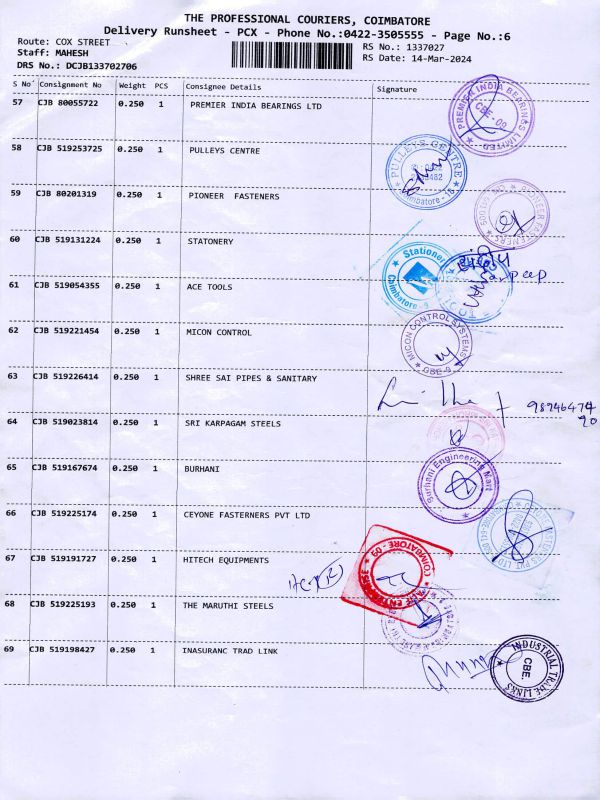 THE PROFESSIONAL COURIERS, COIMBATORE
Delivery Runsheet - PCX - Phone No.:0422-3505555 - Page No.:6
Route: COX STREET RS No.: 1337027
Staff: MAHESH RS Date: 14-Mar-2024
DRS No.: DCJB133702706
S No Consignment No Weight PCS Consignee Details Signature
57 CJB 80055722 0.250 1 PREMIER INDIA BEARINGS LTD
PREMIER INDIA BEARINGS LIMITED
CBE - 09
58 CJB 519253725 0.250 1 PULLEYS CENTRE
PULLEYS CENTRE
Coimbatore - 18
59 CJB 80201319 0.250 1 PIONEER FASTENERS
PIONEER FASTENERS
60 CJB 519131224 0.250 1 STATONERY
Stationery
Coimbatore - 9
61 CJB 519054355 0.250 1 ACE TOOLS
62 CJB 519221454 0.250 1 MICON CONTROL
MICON CONTROL SYSTEMS
CBE-9
63 CJB 519226414 0.250 1 SHREE SAI PIPES & SANITARY
98946474
20
64 CJB 519023814 0.250 1 SRI KARPAGAM STEELS
65 CJB 519167674 0.250 1 BURHANI
Burhani Engineering Mart
66 CJB 519225174 0.250 1 CEYONE FASTERNERS PVT LTD
67 CJB 519191727 0.250 1 HITECH EQUIPMENTS
COIMBATORE - 09
68 CJB 519225193 0.250 1 THE MARUTHI STEELS
69 CJB 519198427 0.250 1 INASURANC TRAD LINK
INDUSTRIAL TRADE LINKS
CBE.